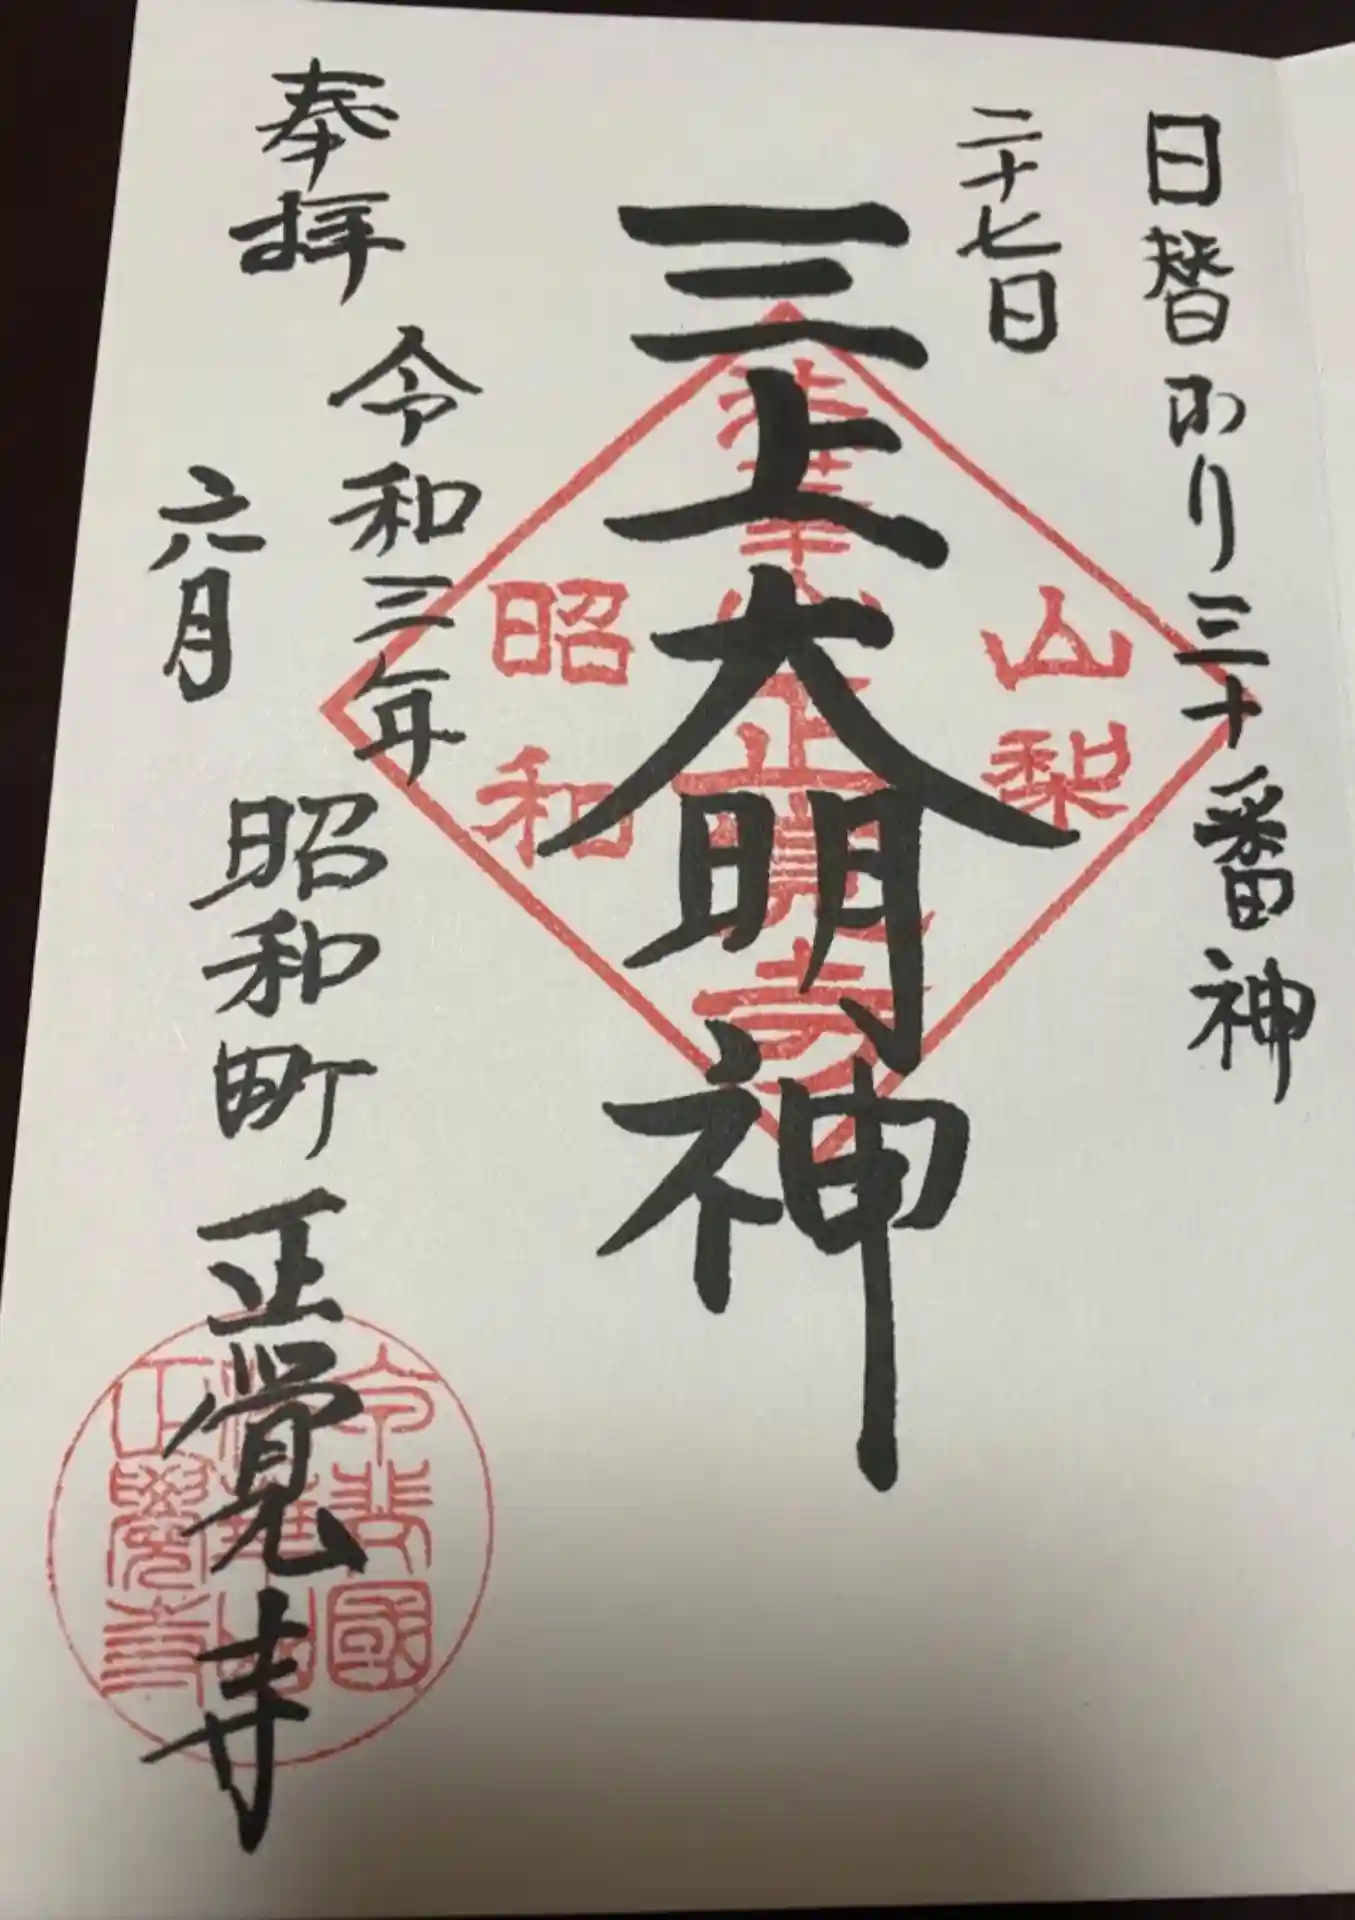 日替わり三十番神
二十七日
三上大明神
山梨
昭和
正覚寺
奉拝
令和三年
六月
昭和町 正覚寺